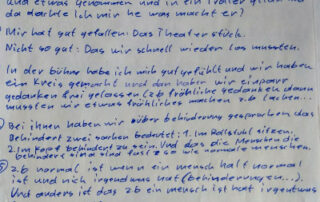 und etwas Genommen und in ein
da dachte ich mir he was macht er?
Mir hat gut gefallen: Das Theaterstück.
Nicht so gut: Das wir schnell wieder los mussten.
In der bühne habe ich mich gut gefühlt und wir haben
ein Kreis gemacht und dan haben wir ein paar
gedanken frei gelassen (zb fröhliche gedanken dann
mussten wir etwas fröhliches machen z.b lachen...
Bei ihnen haben wir über behinderung gesprochen das
Behindert zwei sachen bedeutet: 1. im Rollstuhl sitzen.
2. im Kopf behindert zu sein. Und das die Menschen die
behindert sind sind fast so wie normale menschen.
z.b normal ist wenn ein mensch halt normal
ist und nich irgendwas hat (behinderungen...).
Und anders ist das z.b ein mensch ist hat irgentwas